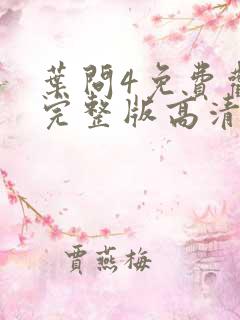 葉問4免費
完整版高清
賈燕梅